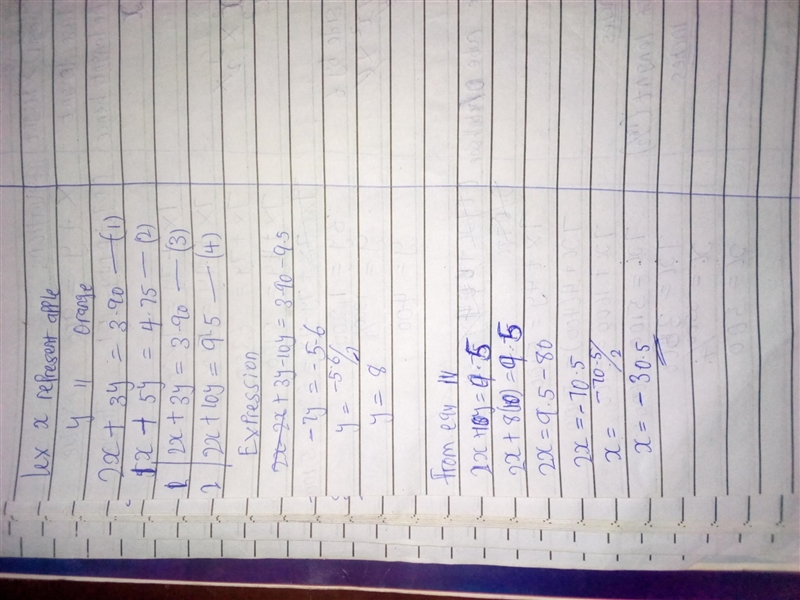 Lex x represent apple
y " Orange
2x + 3y = 3.90 — (1)
1x + 5y = 4.75 — (2)
1 | 2x + 3y = 3.90 — (3)
2 | 2x + 10y = 9.5 — (4)
Expression
2x - 2x + 3y - 10y = 3.90 - 9.5
-7y = -5.6
y = -5.6/-7
y = 8
From equ IV
2x + 10y = 9.5
2x + 8(10) = 9.5
2x = 9.5 - 80
2x = -70.5
x = -70.5/2
x = -30.5